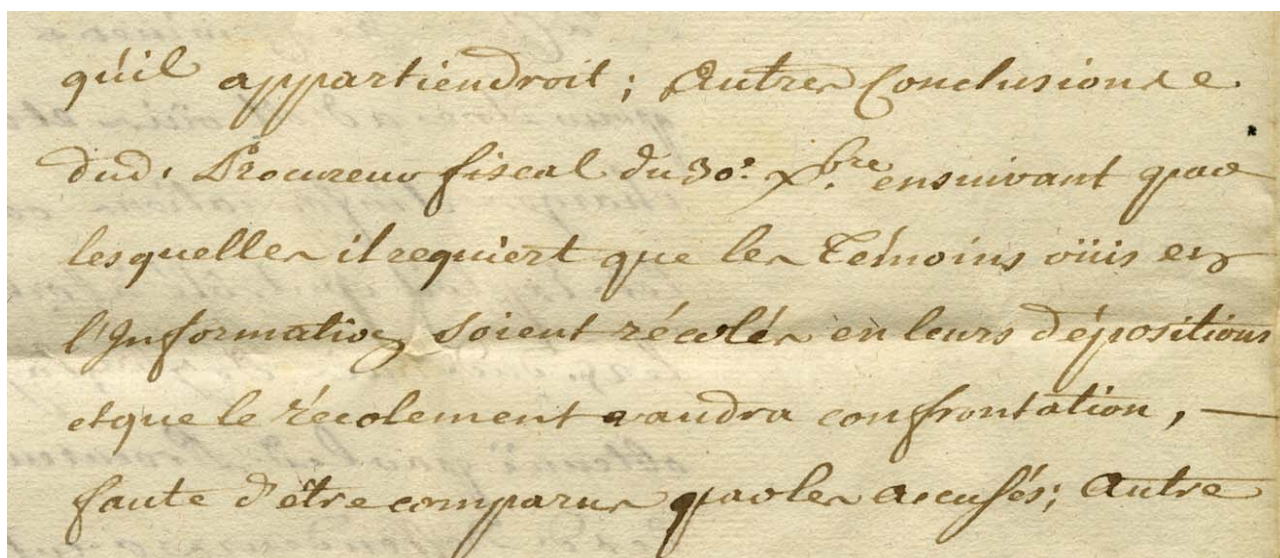 qu'il appartiendroit ; Autres Conclusions
dud. Procureur fiscal du 30.e Xbre ensuivant par
lesquelles il requiert que les Témoins oüis en
l'Information soient récolés en leurs dépositions
et que le récolement vaudra confrontation,
faute d'être comparus par les accusés; autre